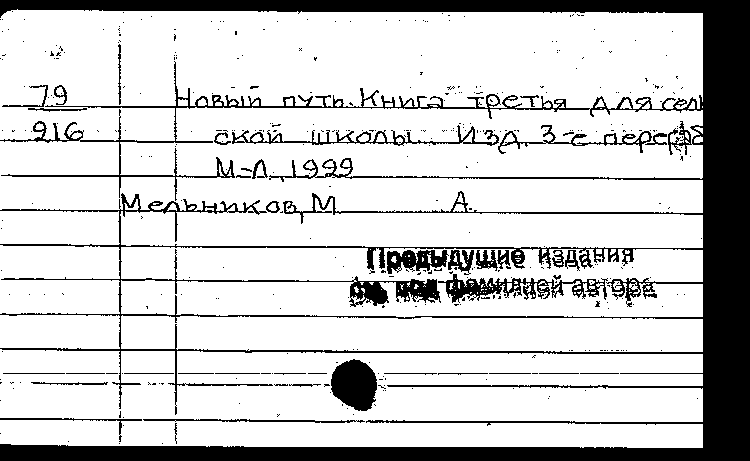 79
Новый путь. Книга третья для сель
916
ской школы. Изд. 3-е перераб
М-Л, 1929
Мельников, М А.
Предыдущие издания
см. под фамилией автора